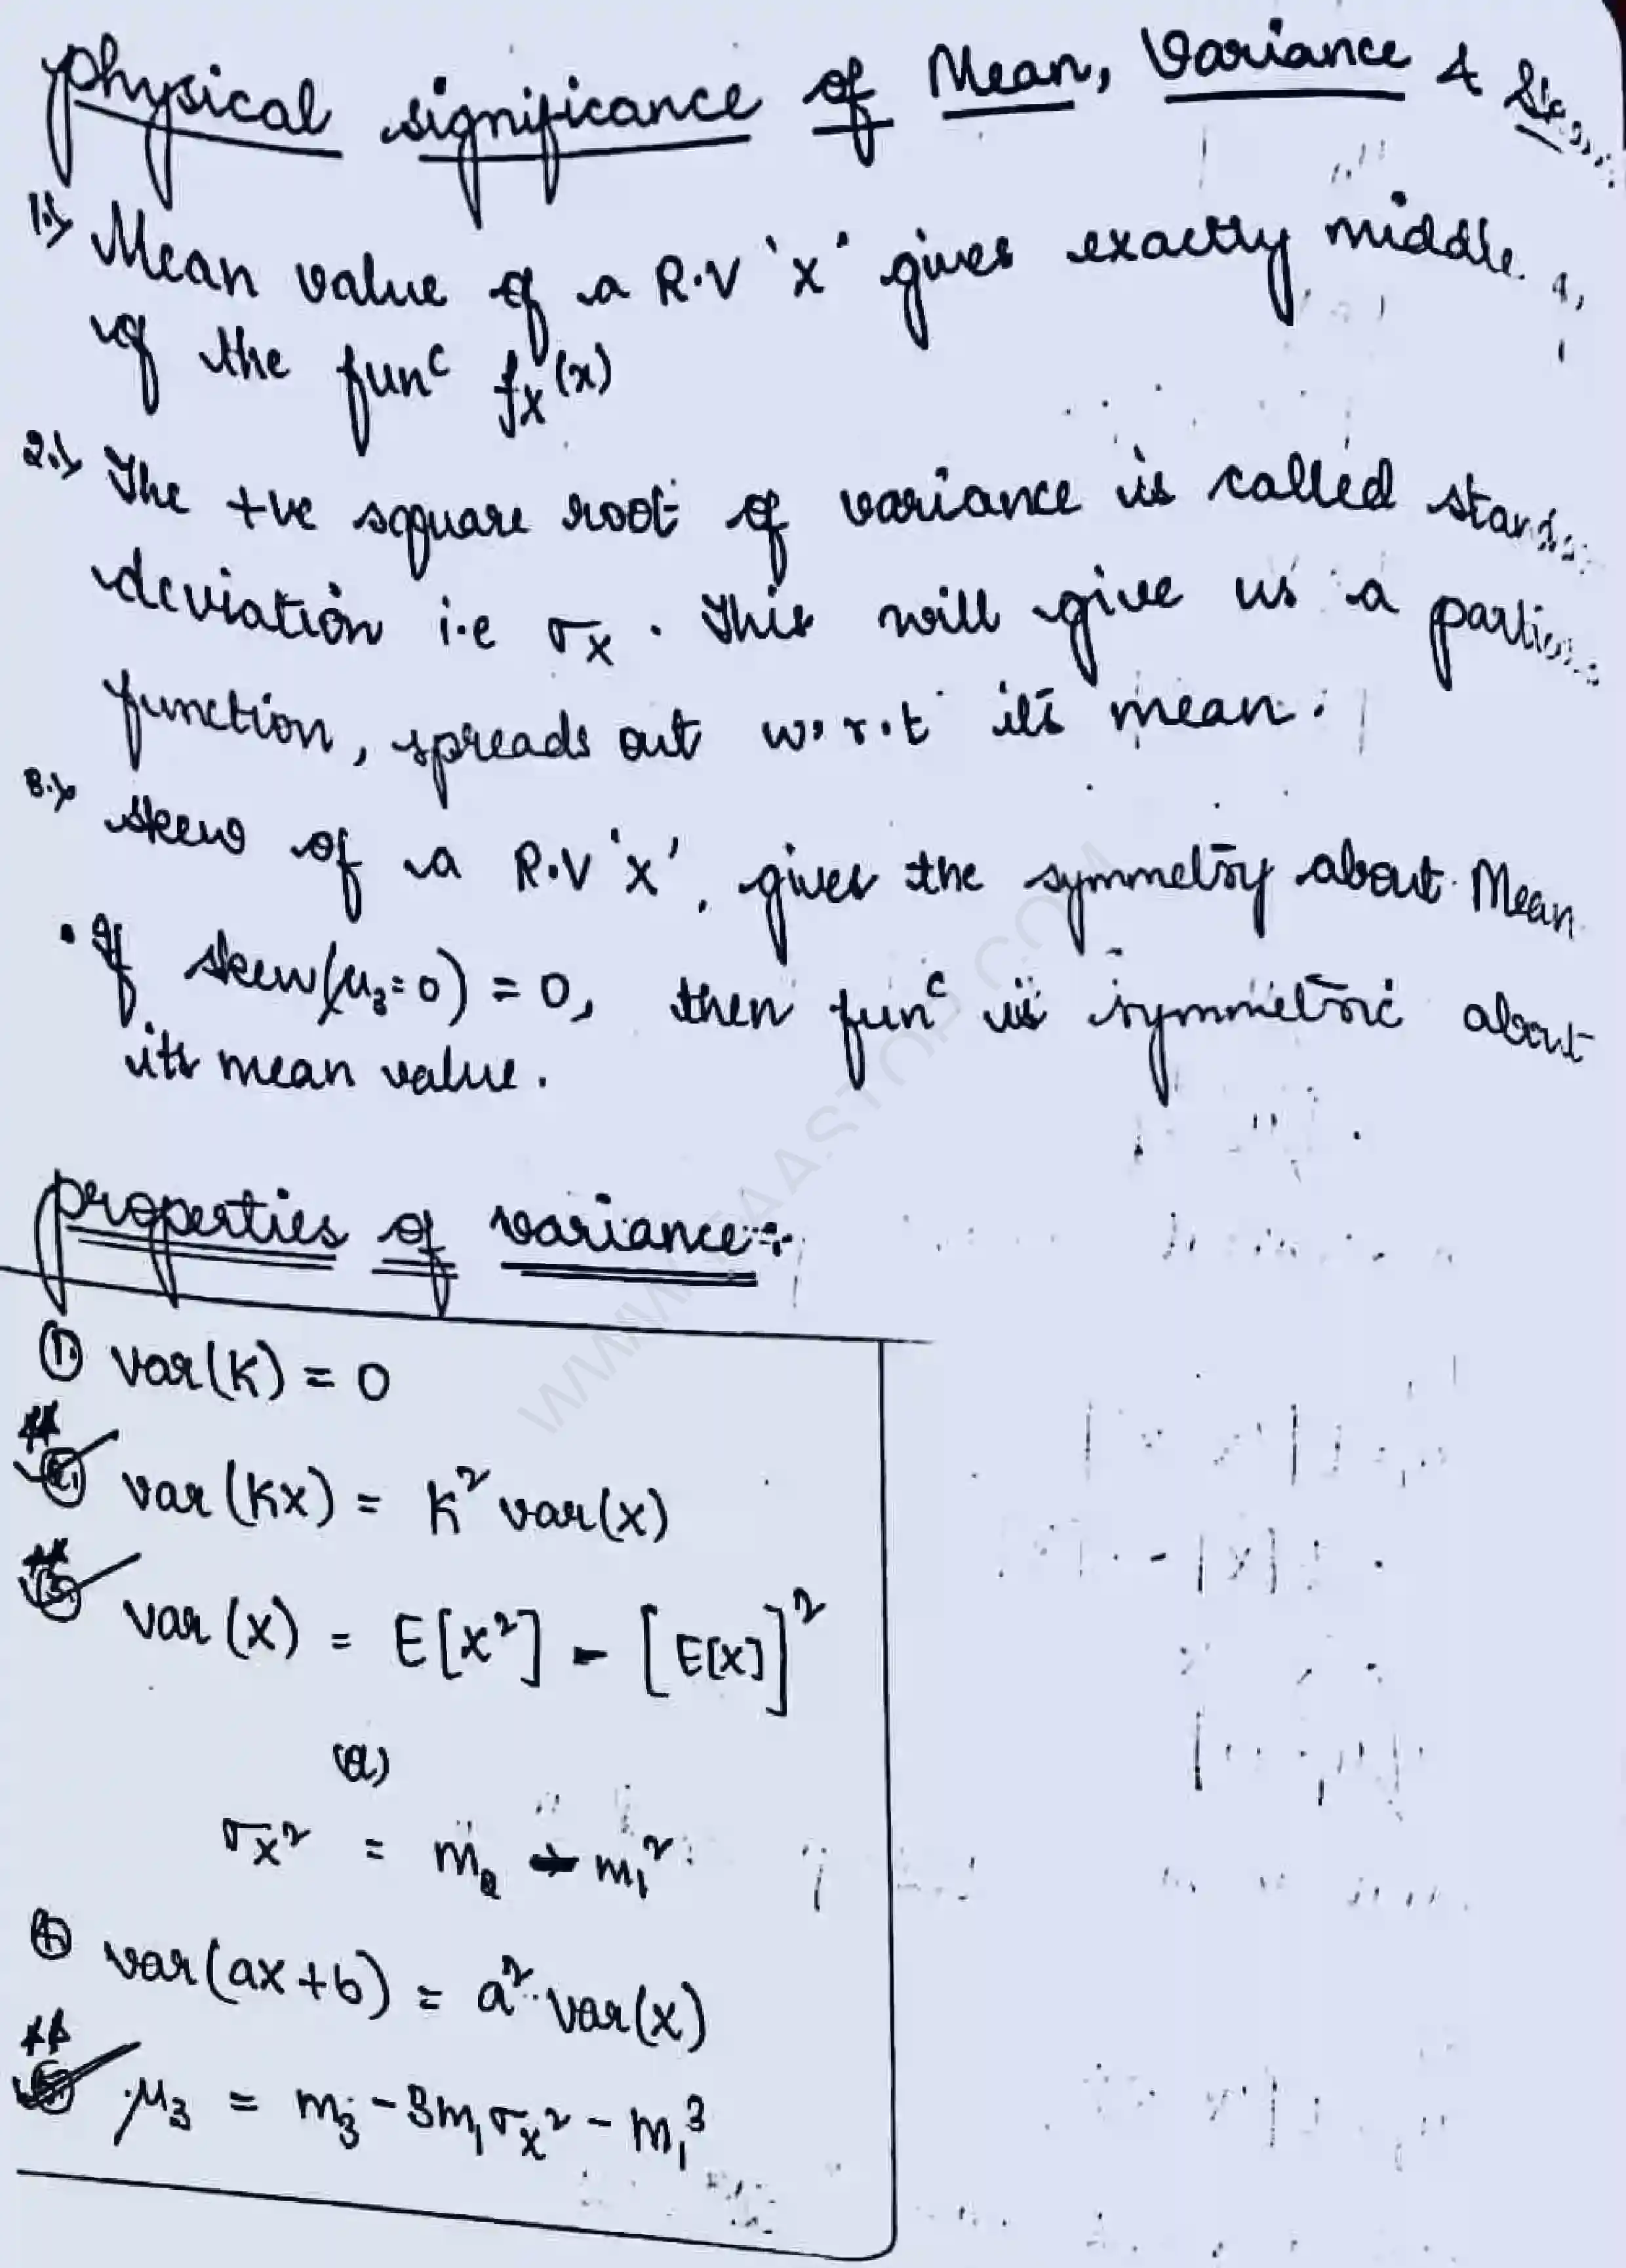 physical significance of Mean, Variance &
1.) Mean value of a R.V 'X' gives exactly middle
of the funᶜ fX(x)
2.) The +ve square root of variance is called
deviation i.e σX. This will give us a
function, spreads out w.r.t its mean.
3.) skew of a R.V 'X', gives the symmetry about Mean
• If skew(μ3=0) = 0, then funᶜ is symmetric about
its mean value.
properties of variance:-
1. var(K) = 0
2. var(KX) = K² var(X)
3. var(X) = E[X²] - [E[X]]²
(or)
σX² = m2 - m1²
4. var(aX+b) = a². var(X)
5. μ3 = m3 - 3m1σX² - m1³
WWW.FAASTOP.COM